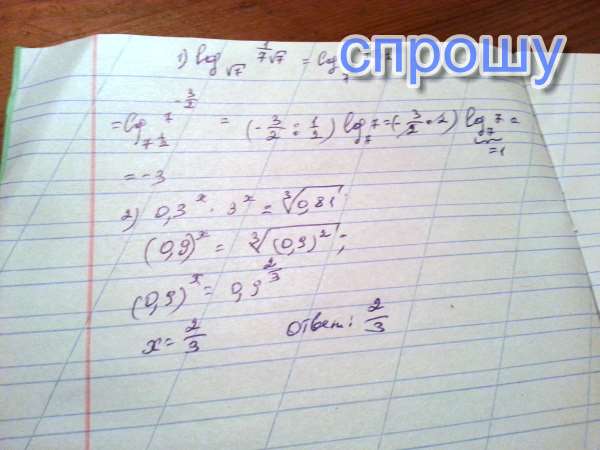 спрошу
1) log_√7 1/(7√7) = log_7
= log_(7^(1/2)) 7^(-3/2) = (-3/2 : 1/2) log_7 7 = (-3/2 · 2) log_7 7 =
=1
= -3
2) 0,3^x · 3^x = ∛0,81
(0,9)^x = ∛(0,9)^2;
(0,9)^x = 0,9^(2/3)
x = 2/3 Ответ: 2/3